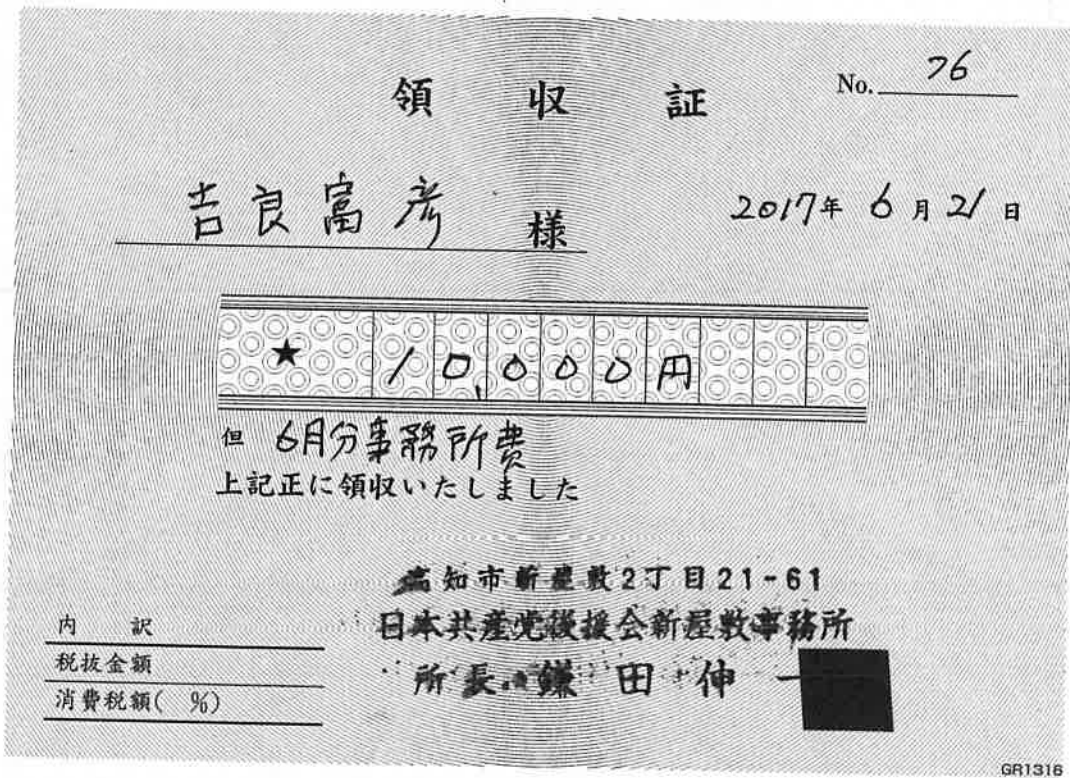 No. 76
領収証
吉良富彦 様
2017年 6月 21日
★ 10,000円
但 6月分事務所費
上記正に領収いたしました
高知市新屋敷2丁目21-61
日本共産党後援会新屋敷事務所
所長 鎌田伸一
内訳
税抜金額
消費税額( %)
GR1316